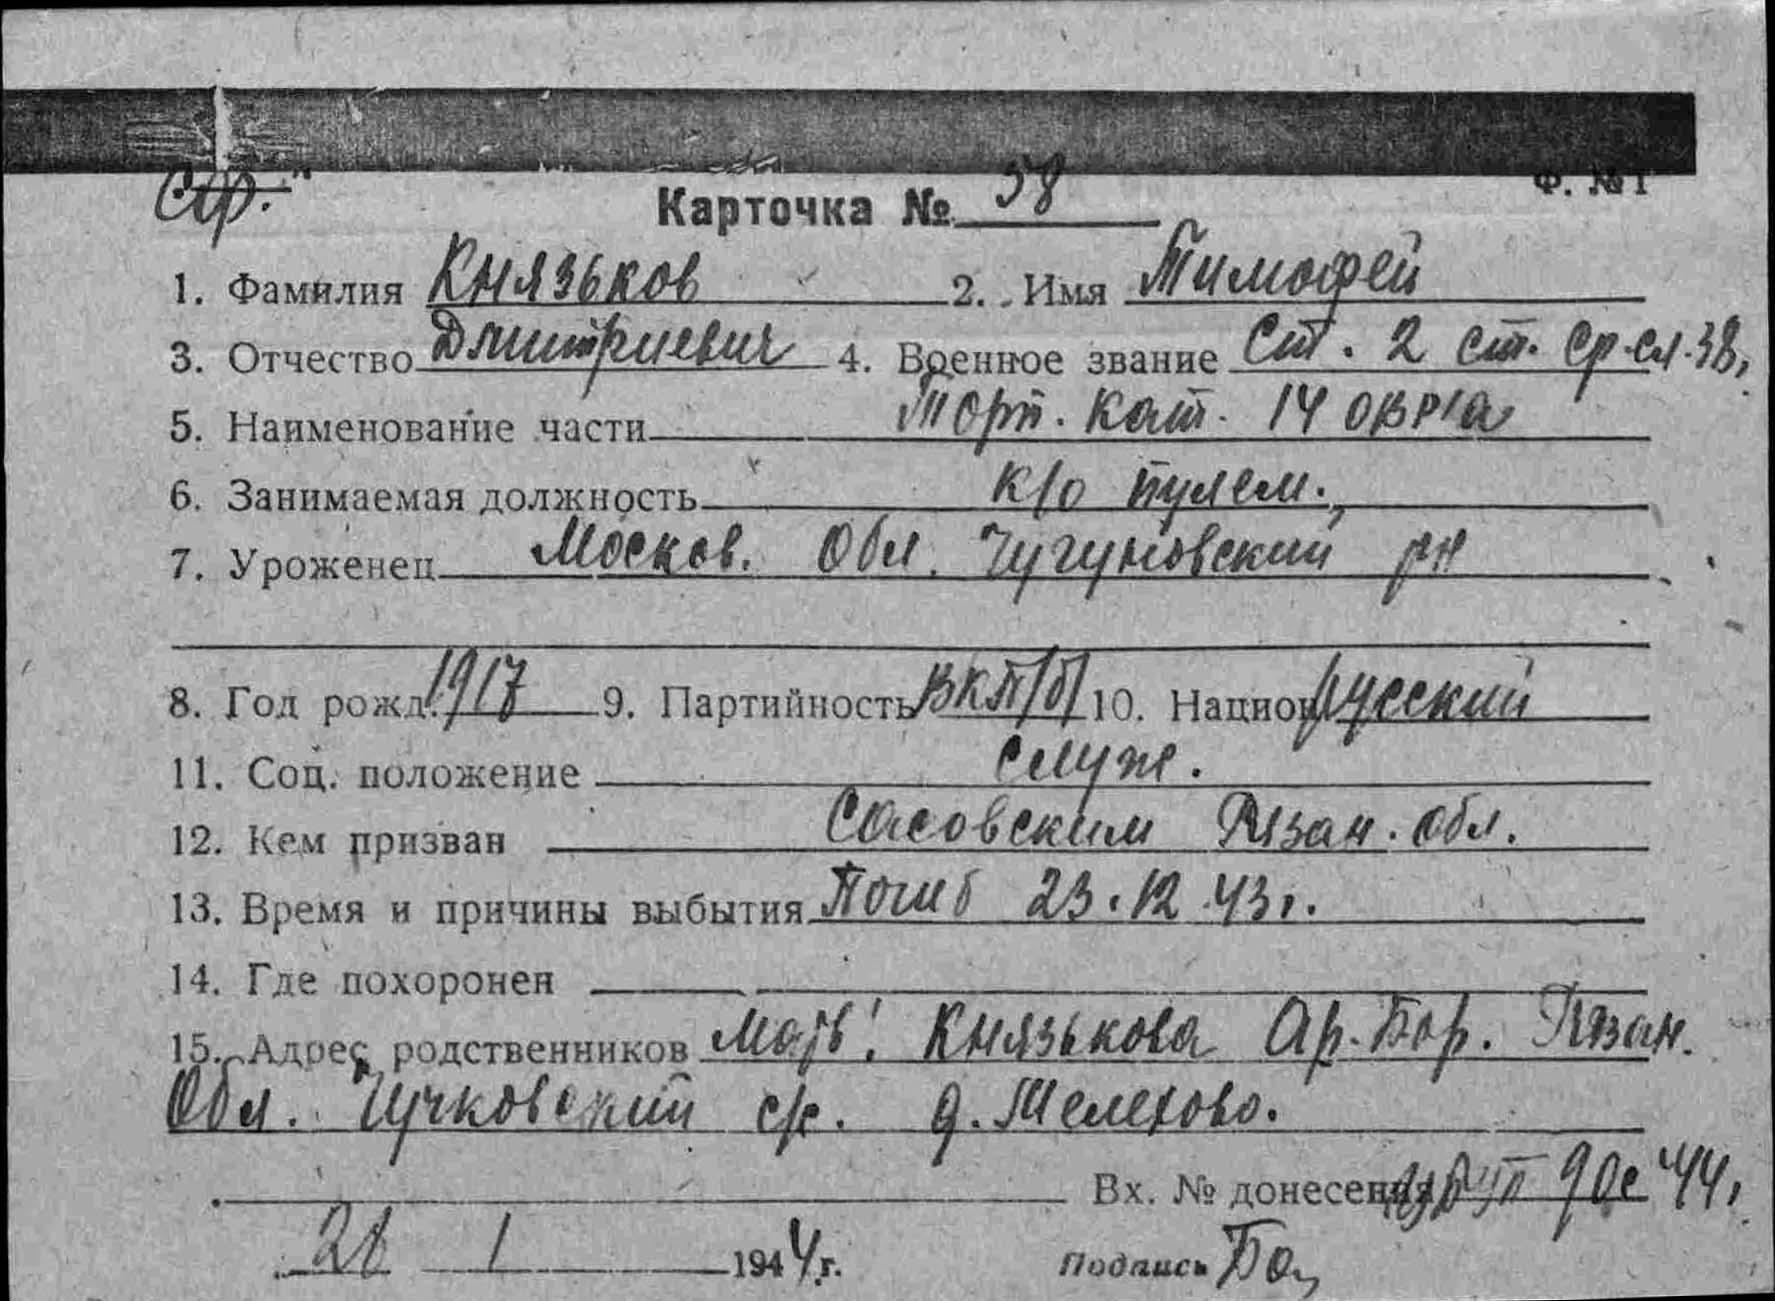 Стр.
Ф. №1
Карточка № 58
1. Фамилия Князьков 2. Имя Тимофей
3. Отчество Дмитриевич 4. Военное звание Ст. 2 ст. ср.сл.38,
5. Наименование части Торп. Кат. 14 ОВРа
6. Занимаемая должность к/о пулем.
7. Уроженец Москов. Обл. Чугуновский рн
8. Год рожд. 1917 9. Партийность ВКП/б/ 10. Национ русский
11. Соц. положение служ.
12. Кем призван Сасовским Рязан. обл.
13. Время и причины выбытия Погиб 23.12.43г.
14. Где похоронен
15. Адрес родственников Мать: Князькова Ар. Бор. Рязан.
Обл. Чучковский с/с. д. Мелехово.
Вх. № донесен 44г
1 1944 г.
Подпись